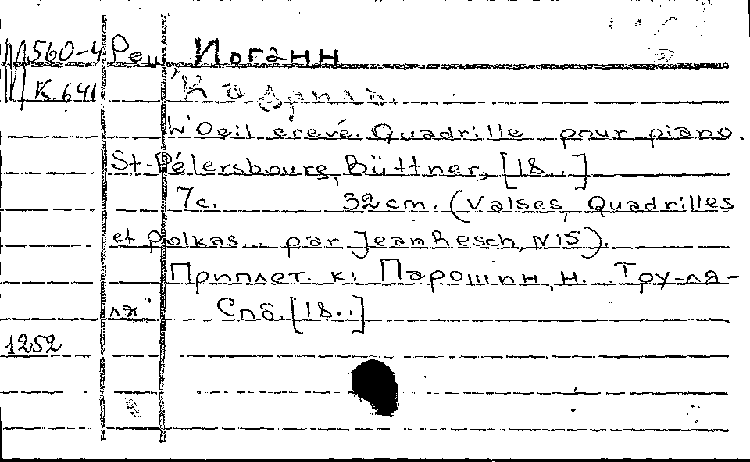 М560-4 Реш, Иоганн
К 641 Кадриль.
L'Oeil crevé. Quadrille pour piano.
St-Pétersbourg, Büttner, [18..]
7с. 32 cm. (Valses, Quadrilles
et polkas... par Jean Resch, N15).
Приплет. к: Парошин, Н. Тру-ля-
ля. Спб. [18..]
1252